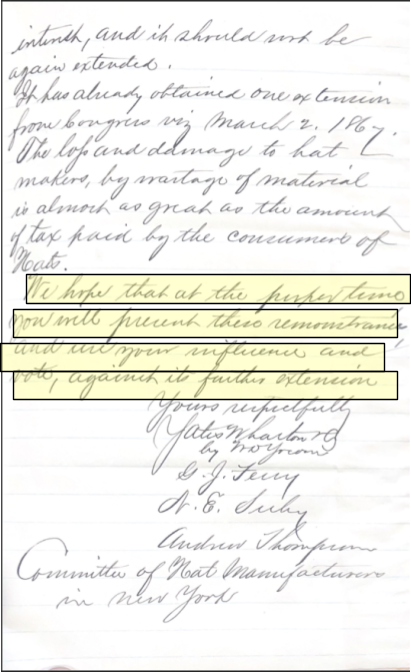 interest, and it should not be
again extended.
It has already obtained one extension
from Congress viz March 2. 1867.
The loss and damage to hat
makers, by wastage of material
is almost as great as the amount
of tax paid by the consumers of
Hats.
We hope that at the proper time
you will present these remonstrances
and use your influence and
vote, against its further extension
Yours respectfully
Yates Wharton & Co
by
G. J. Terry
N. E.
Andrew Thompson
Committee of Hat Manufacturers
in new York